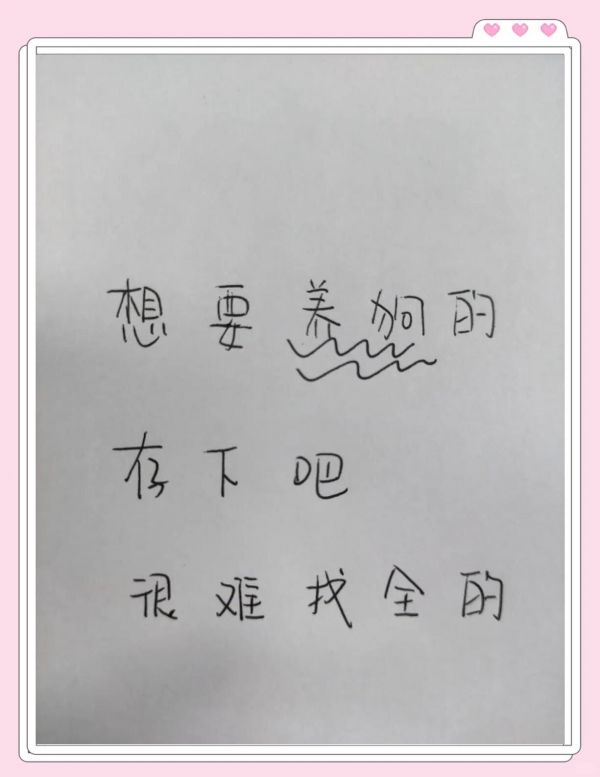 想要养狗的
存下吧
很难找全的